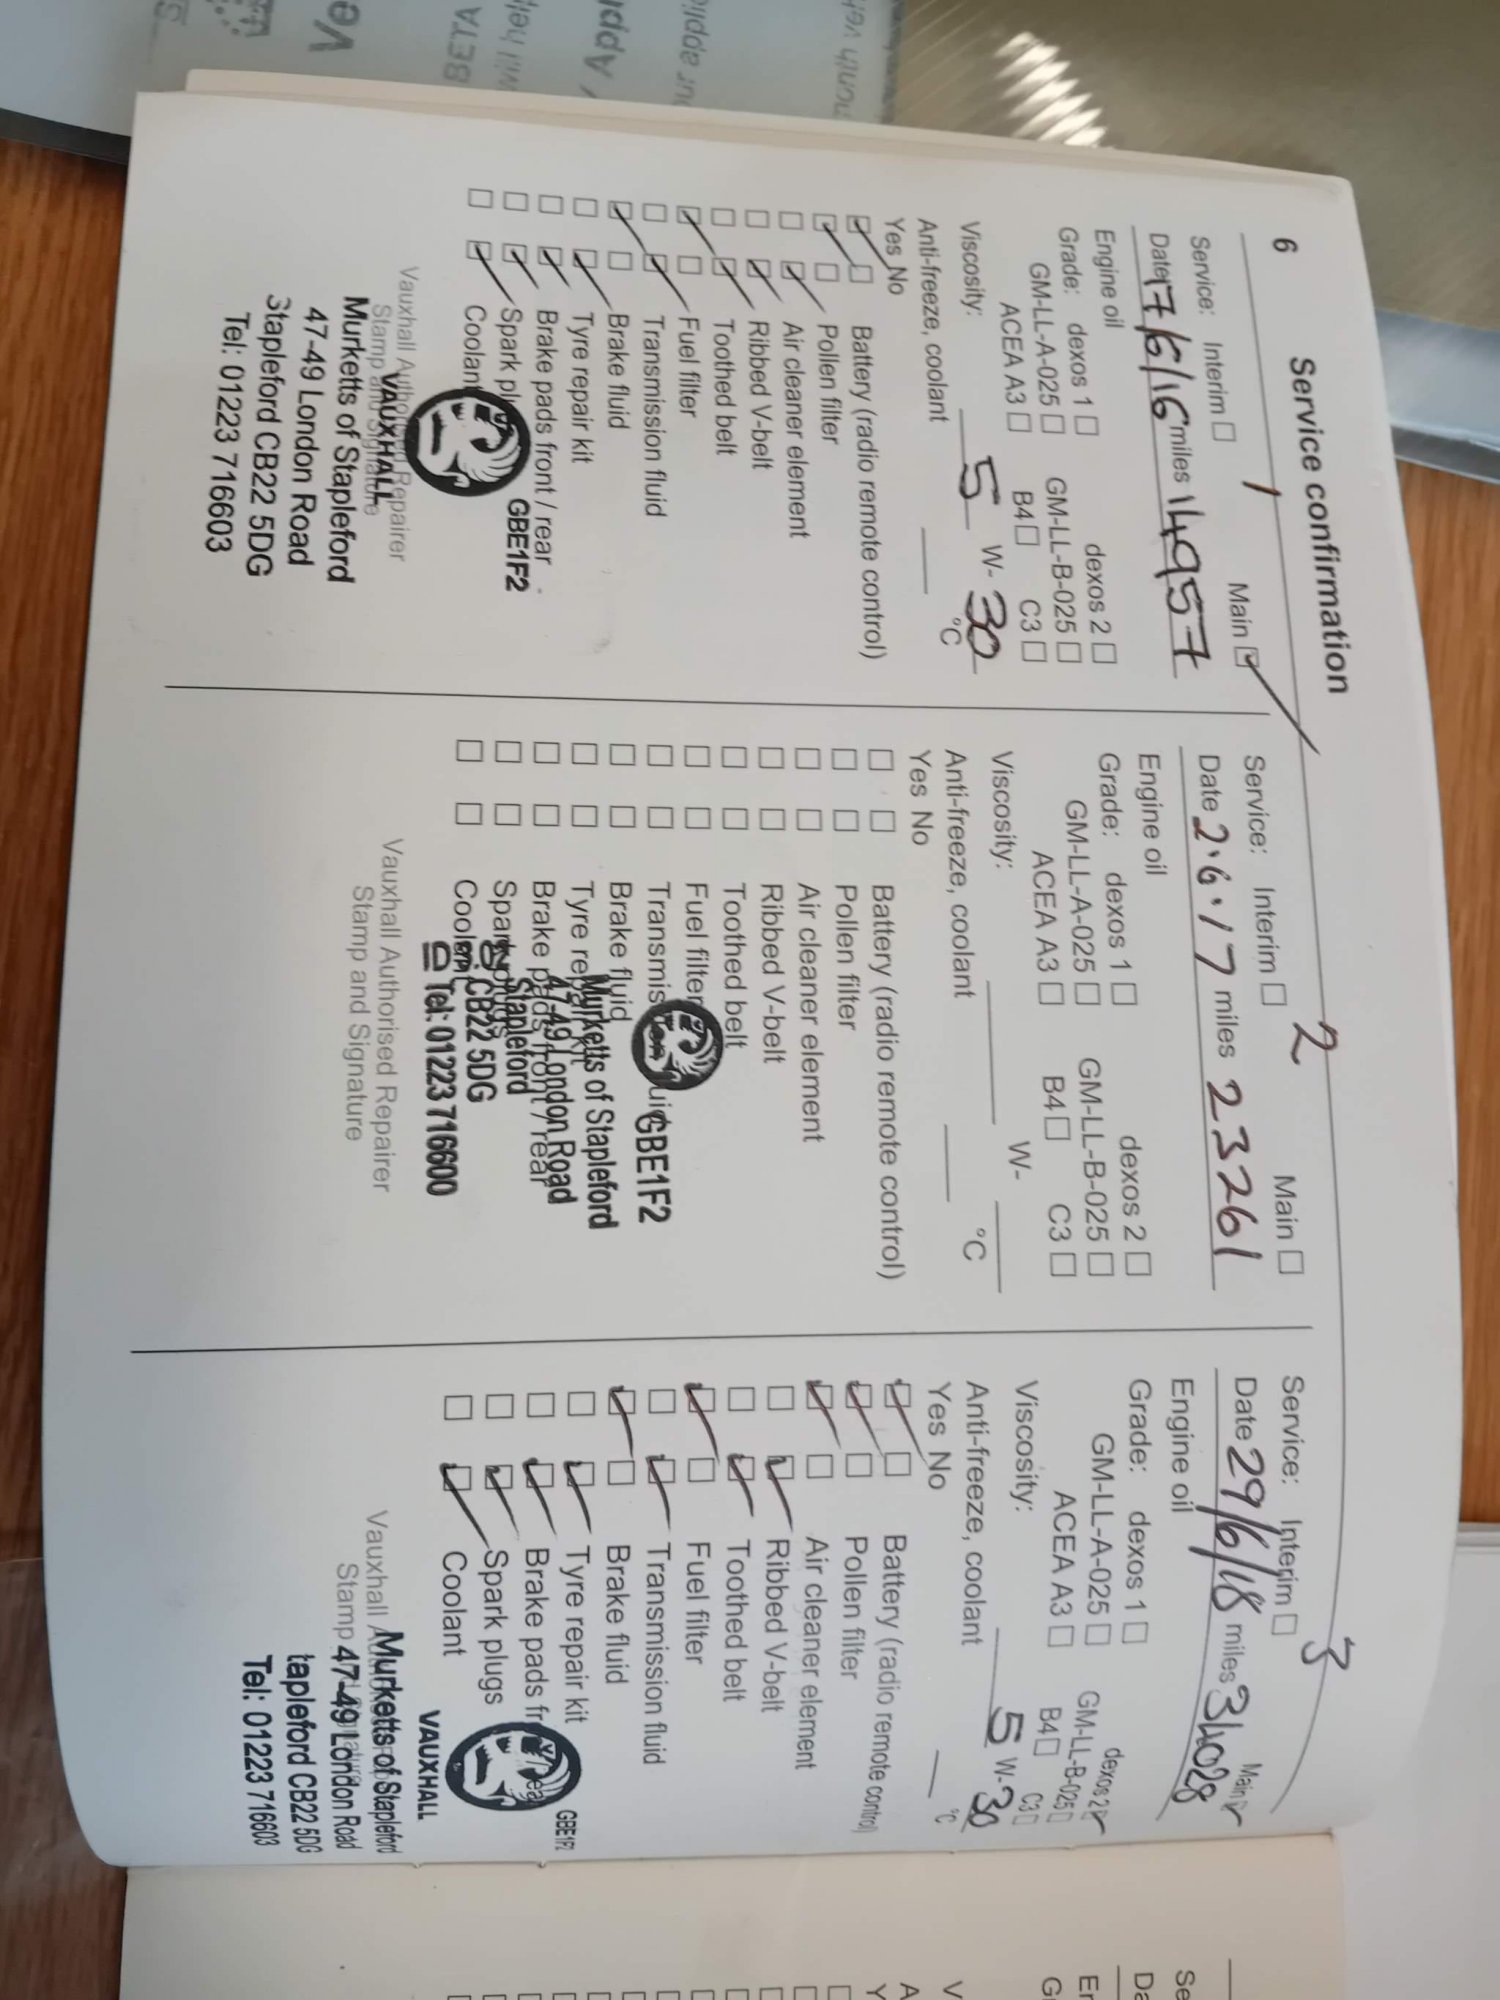 6 Service confirmation
1
Service: Interim Main
Date 17/6/16 miles 14957
Engine oil
Grade: dexos 1 dexos 2
GM-LL-A-025 GM-LL-B-025
ACEA A3 B4 C3
Viscosity: 5 W-30
Anti-freeze, coolant °C
Yes No
Battery (radio remote control)
Pollen filter
Air cleaner element
Ribbed V-belt
Toothed belt
Fuel filter
Transmission fluid
Brake fluid
Tyre repair kit
Brake pads front / rear
Spark
Coolant
GBE1F2
Vauxhall Authorised Repairer
Stamp and Signature
VAUXHALL
Murketts of Stapleford
47-49 London Road
Stapleford CB22 5DG
Tel: 01223 716603
2
Service: Interim Main
Date 2.6.17 miles 23261
Engine oil
Grade: dexos 1 dexos 2
GM-LL-A-025 GM-LL-B-025
ACEA A3 B4 C3
Viscosity: W-
Anti-freeze, coolant °C
Yes No
Battery (radio remote control)
Pollen filter
Air cleaner element
Ribbed V-belt
Toothed belt
Fuel filter
Brake fluid
Tyre repair kit
Brake pads front / rear
Spark plugs
Coolant
GBE1F2
Murketts of Stapleford
47-49 London Road
Stapleford
CB22 5DG
Tel: 01223 716600
Vauxhall Authorised Repairer
Stamp and Signature
3
Service: Interim Main
Date 29/6/18 miles 34028
Engine oil
Grade: dexos 1 dexos 2
GM-LL-A-025 GM-LL-B-025
ACEA A3 B4 C3
Viscosity: 5 W-30
Anti-freeze, coolant °C
Yes No
Battery (radio remote control)
Pollen filter
Air cleaner element
Ribbed V-belt
Toothed belt
Fuel filter
Transmission fluid
Brake fluid
Tyre repair kit
Brake pads
Spark plugs
Coolant
GBE1F2
VAUXHALL
Vauxhall
Stamp
Murketts of Stapleford
47-49 London Road
tapleford CB22 5DG
Tel: 01223 716603